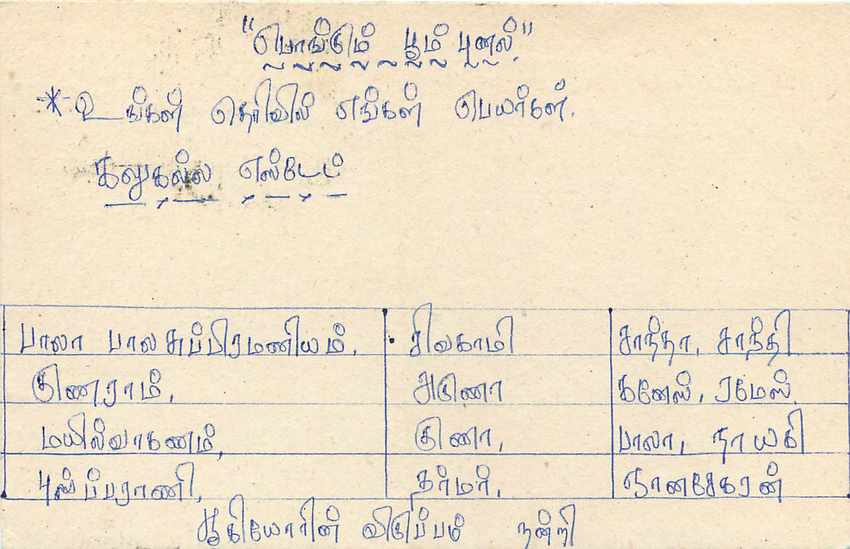 "பொங்கும் பூம் புனல்"
* உங்கள் தெரிவில் எங்கள் பெயர்கள்.
கலுகல்ல எஸ்டேட்
பாலா பாலசுப்பிரமணியம், சிவகாமி சாந்தா, சாந்தி
குணராம், அருணா கனேஸ், ரமேஸ்
மயில்வாகணம், குணா, பாலா, நாயகி
புஸ்ப்பராணி, தர்மர், ஞானசேகரன்
ஆகியோரின் விருப்பம் நன்றி